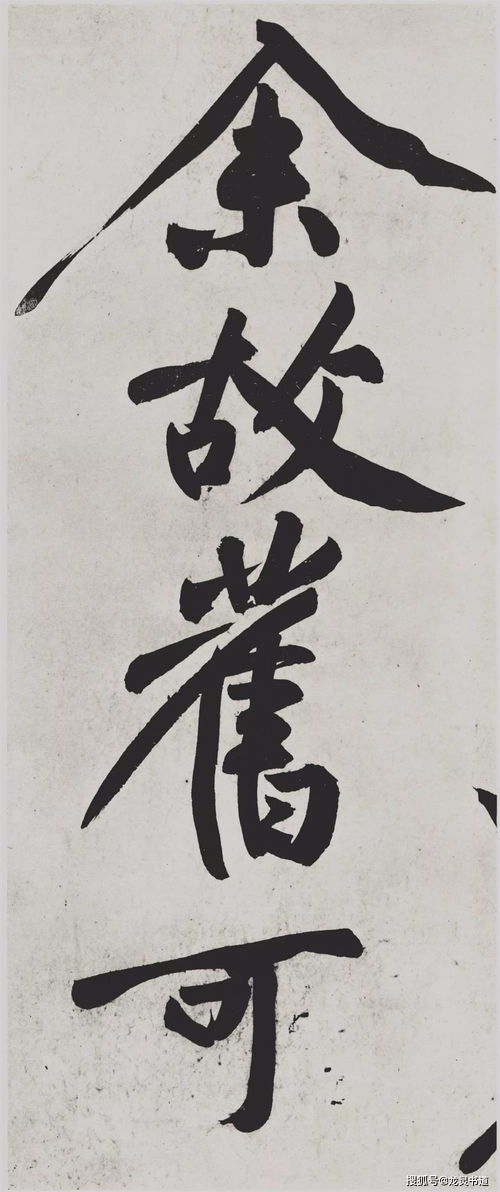 余故舊可
搜狐号@龙灵书道